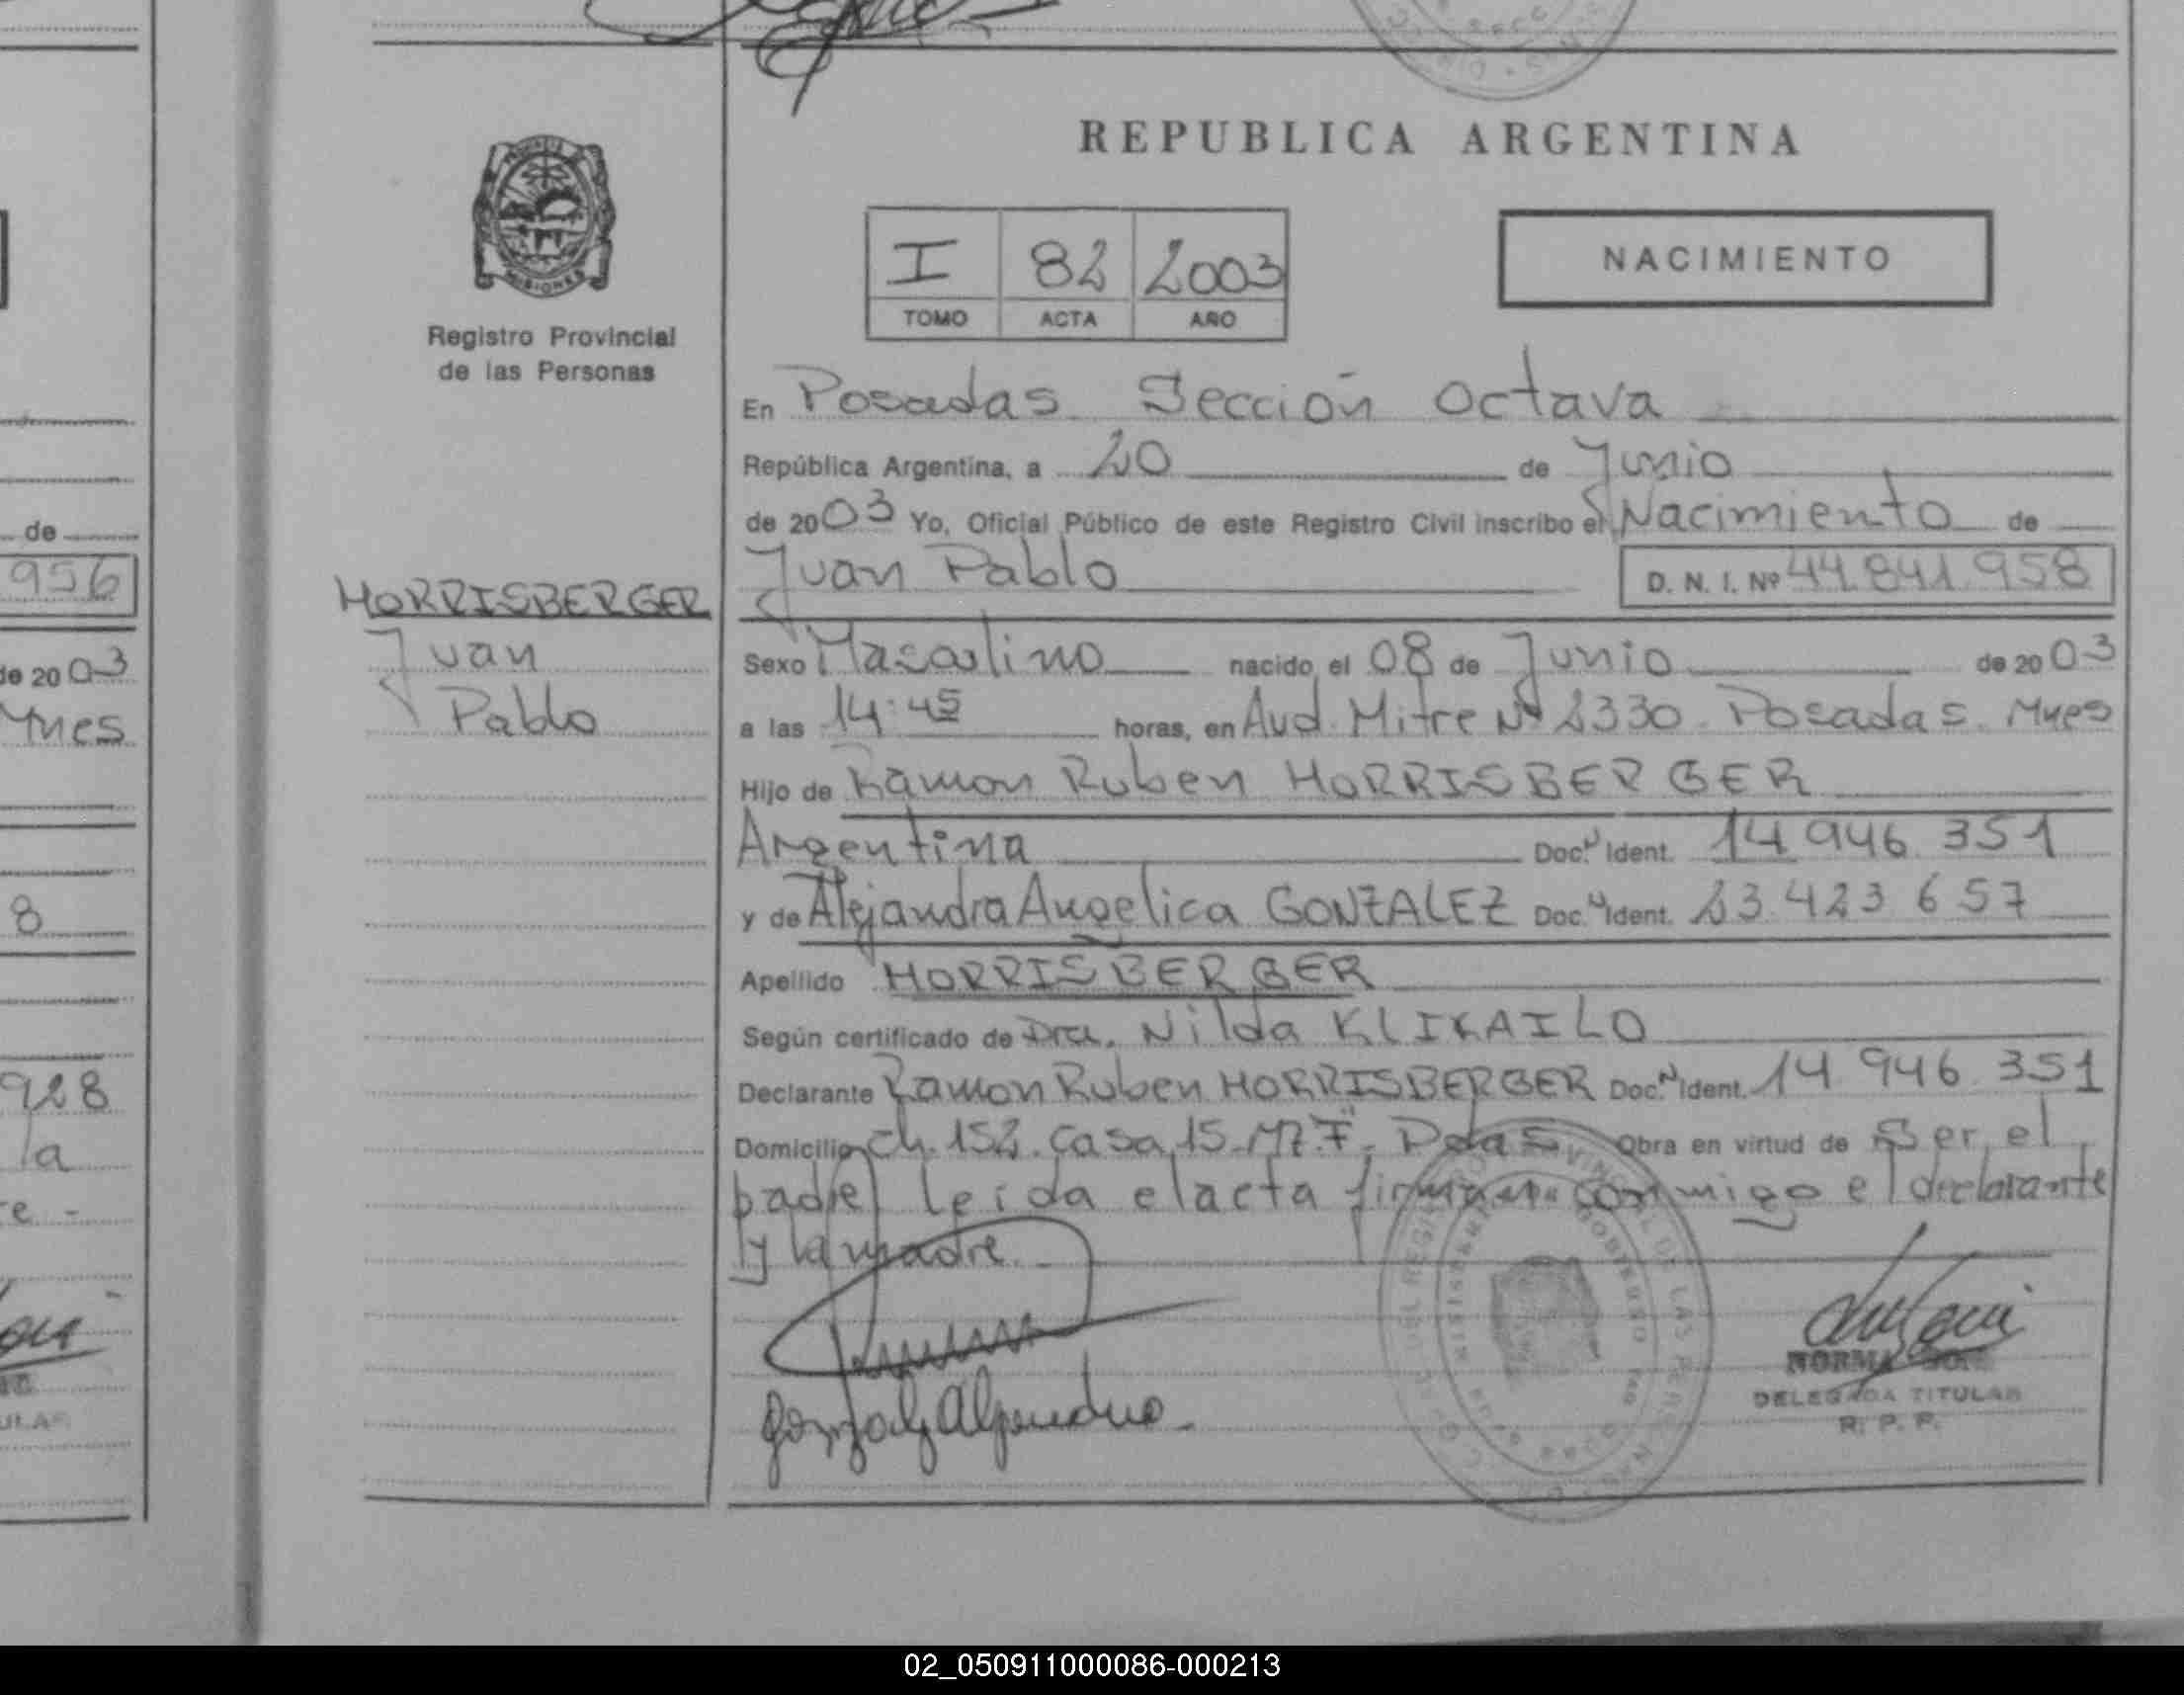 REPUBLICA ARGENTINA
PROVINCIA DE
MISIONES
Registro Provincial
de las Personas
I 82 2003
TOMO ACTA AÑO
NACIMIENTO
En Posadas Sección Octava
República Argentina, a 20 de Junio
de 2003 Yo, Oficial Público de este Registro Civil inscribo el Nacimiento de
Juan Pablo D. N. I. Nº 44.841.958
HORRISBERGER
Juan
Pablo
Sexo Masculino nacido el 08 de Junio de 2003
a las 14:45 horas, en Avd. Mitre Nº 2330. Posadas. Mnes
Hijo de Ramon Ruben HORRISBERGER
Argentina Doc. Ident. 14.946.351
y de Alejandra Angelica GONZALEZ Doc. Ident. 23.423.657
Apellido HORRISBERGER
Según certificado de Dra. Nilda KLIKAILO
Declarante Ramon Ruben HORRISBERGER Doc. Ident. 14.946.351
Domicilio Ch. 152. Casa 15. Mz. F. Pdas Obra en virtud de Ser el
padre leida el acta firman conmigo el declarante
y la madre.
Gonzalez Alejandra
NORMA
DELEGADA TITULAR
R. P. P.
de
956
de 2003
Mnes
8
928
la
02_050911000086-000213